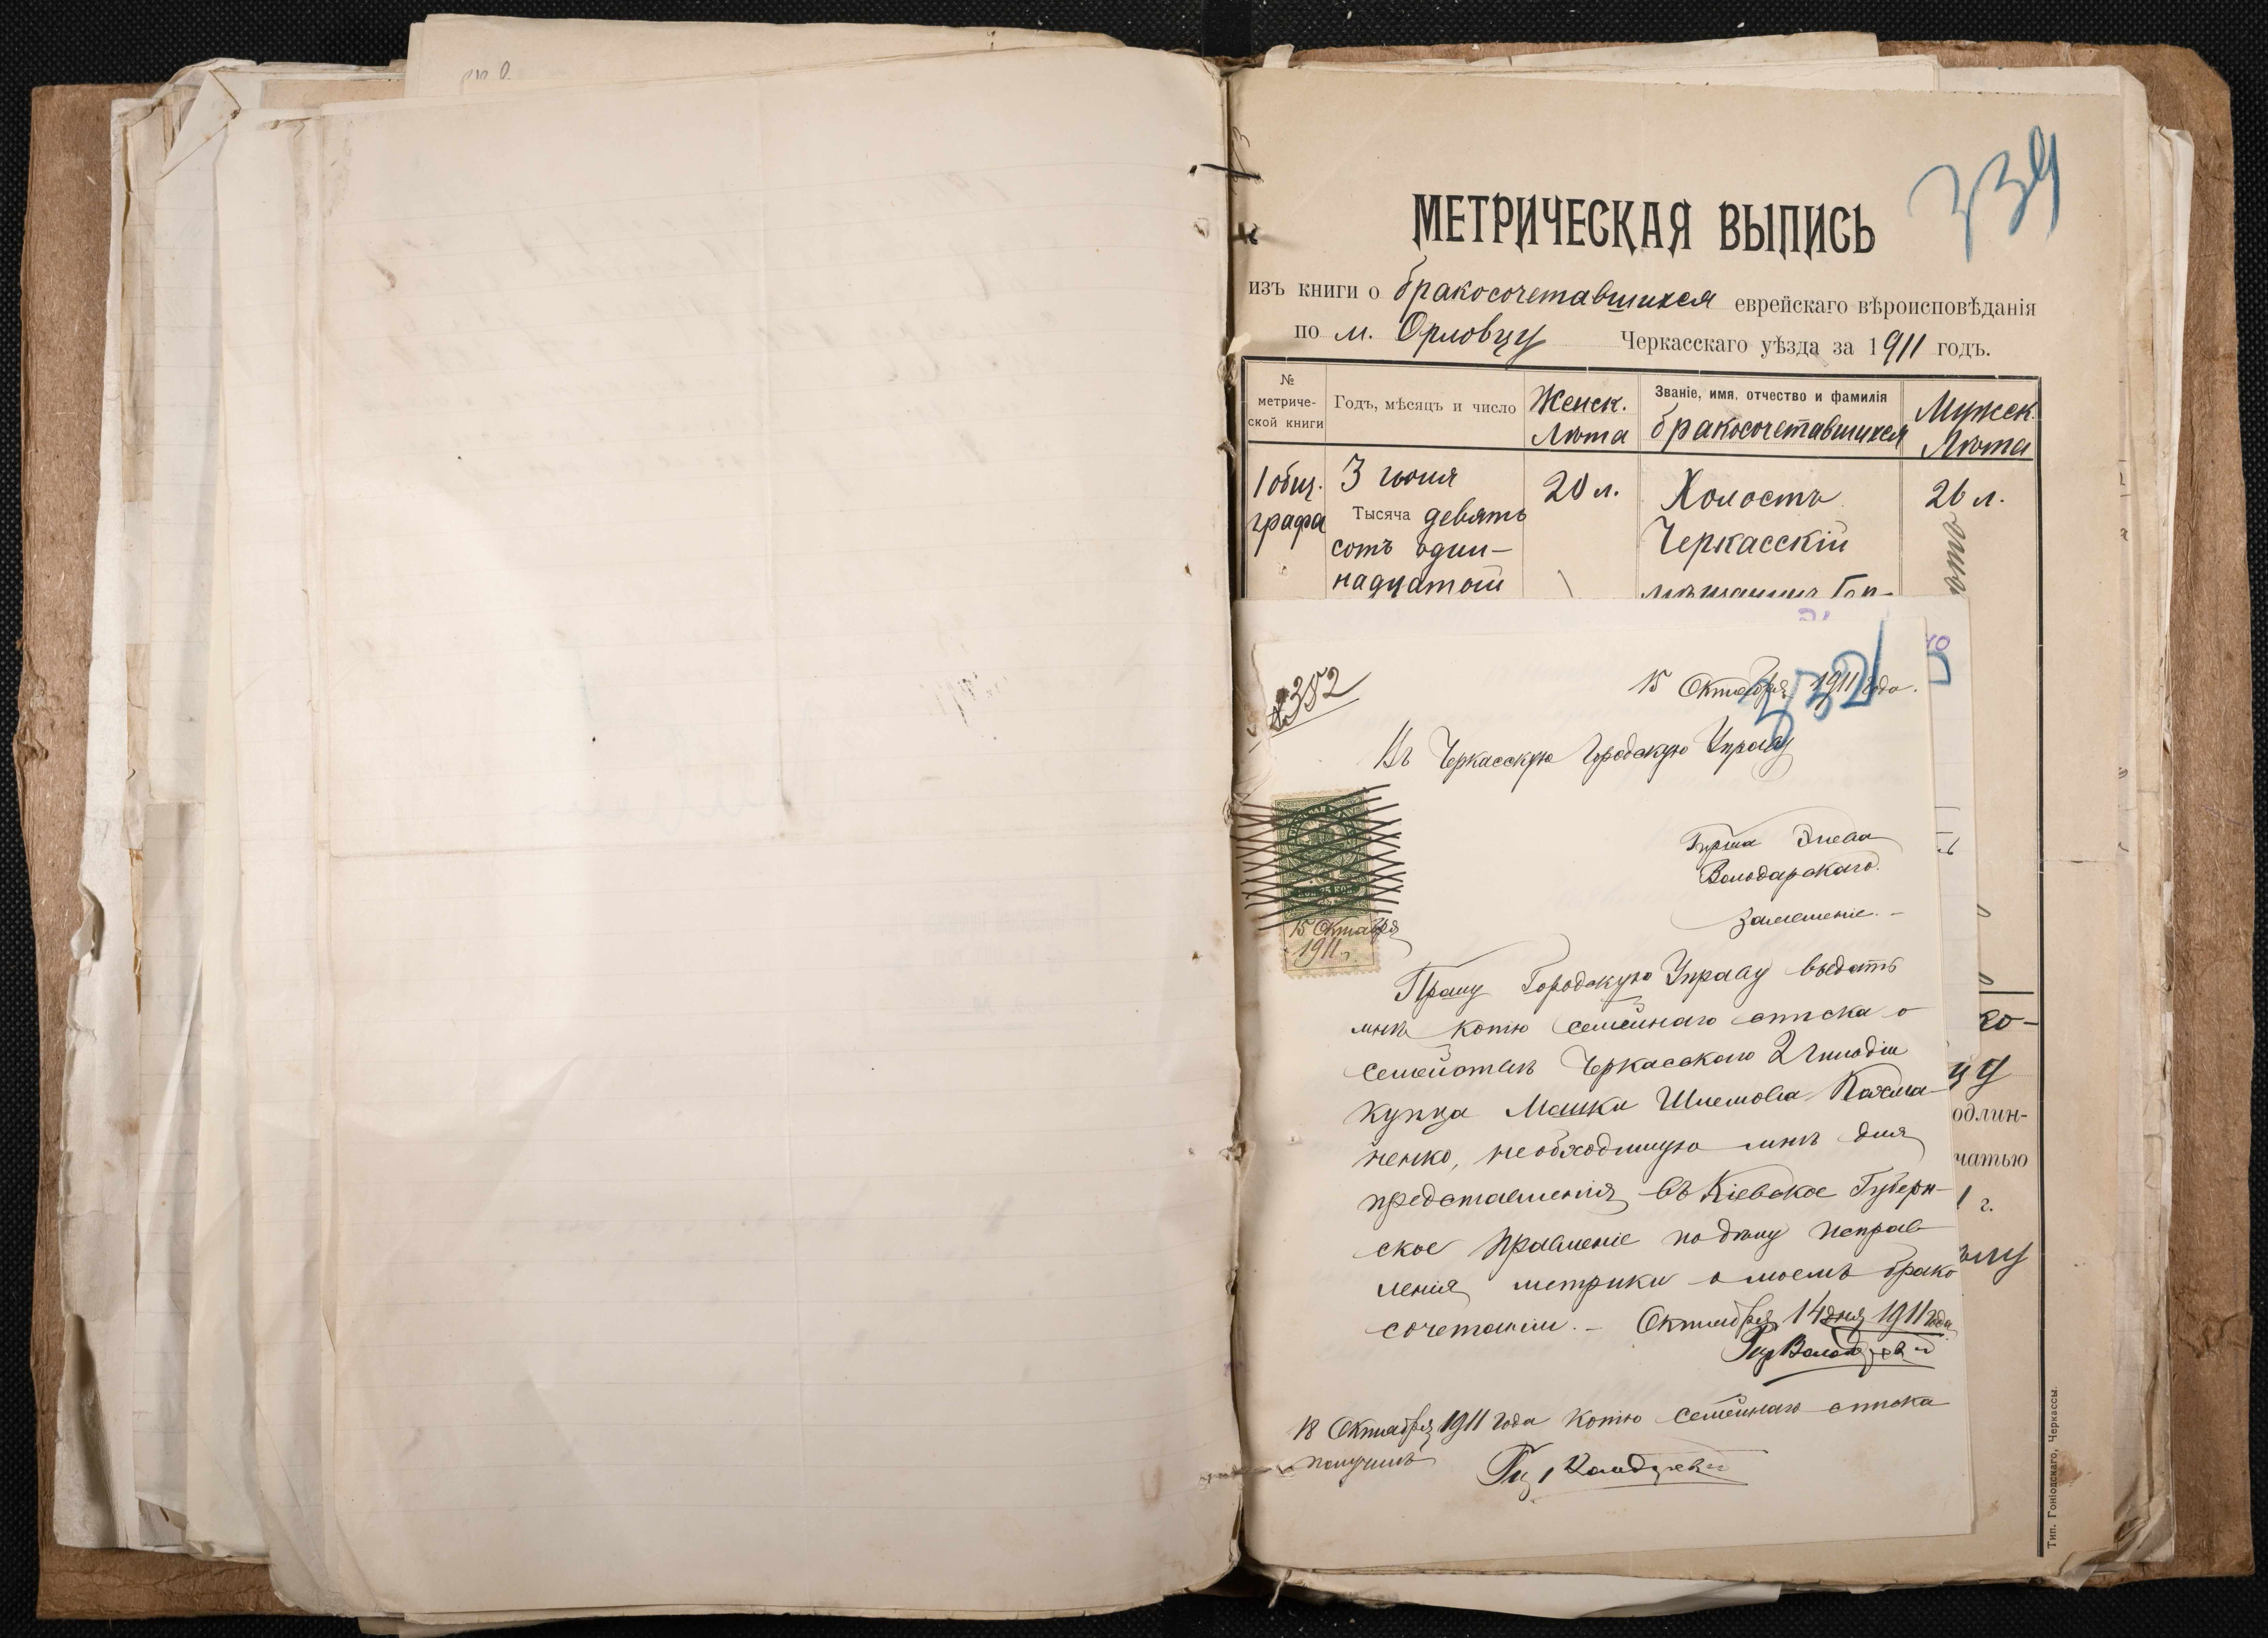 339
МЕТРИЧЕСКАЯ ВЫПИСЬ
изъ книги о бракосочетавшихся еврейскаго вѣроисповѣданія
по м. Орловцу Черкасскаго уѣзда за 1911 годъ.
№ метриче-ской книги
Годъ, мѣсяцъ и число
Женск. Лѣта
Званіе, имя, отчество и фамилія бракосочетавшихся
Мужск. Лѣта
1 общ.
графа
3 іюня
Тысяча девять
сотъ один-
надцатый
20 л.
Холостъ
Черкасскій
мѣщанинъ
26 л.
352
15 Октября 1911 года.
Въ Черкасскую Городскую Управу
Гирша
Володарскаго.
Заявленіе. -
15 Октября
1911 г.
Прошу Городскую Управу выдать
мнѣ копію семейнаго списка о
семействѣ Черкасскаго 2 гильдіи
купца Мошки Шлемова
ненко, необходимую мнѣ для
представленія въ Кіевское Губерн-
ское Правленіе по дѣлу исправ
ленія метрики о моемъ брако
сочетаніи. - Октября 14 дня 1911 года
18 Октября 1911 года копію семейнаго списка
получилъ
го-
цу
одлин-
чатью
1 г.
Тип. Гоніодскаго, Черкассы.